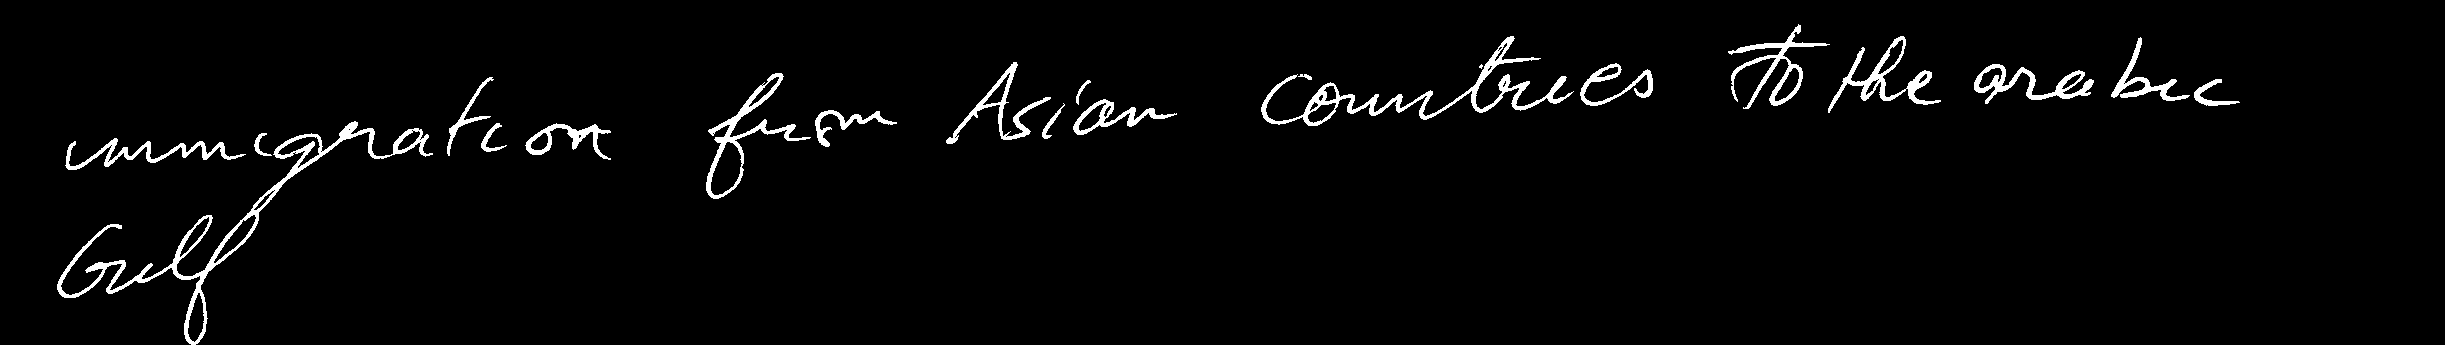 immigration from Asian countries to the arabic
Gulf